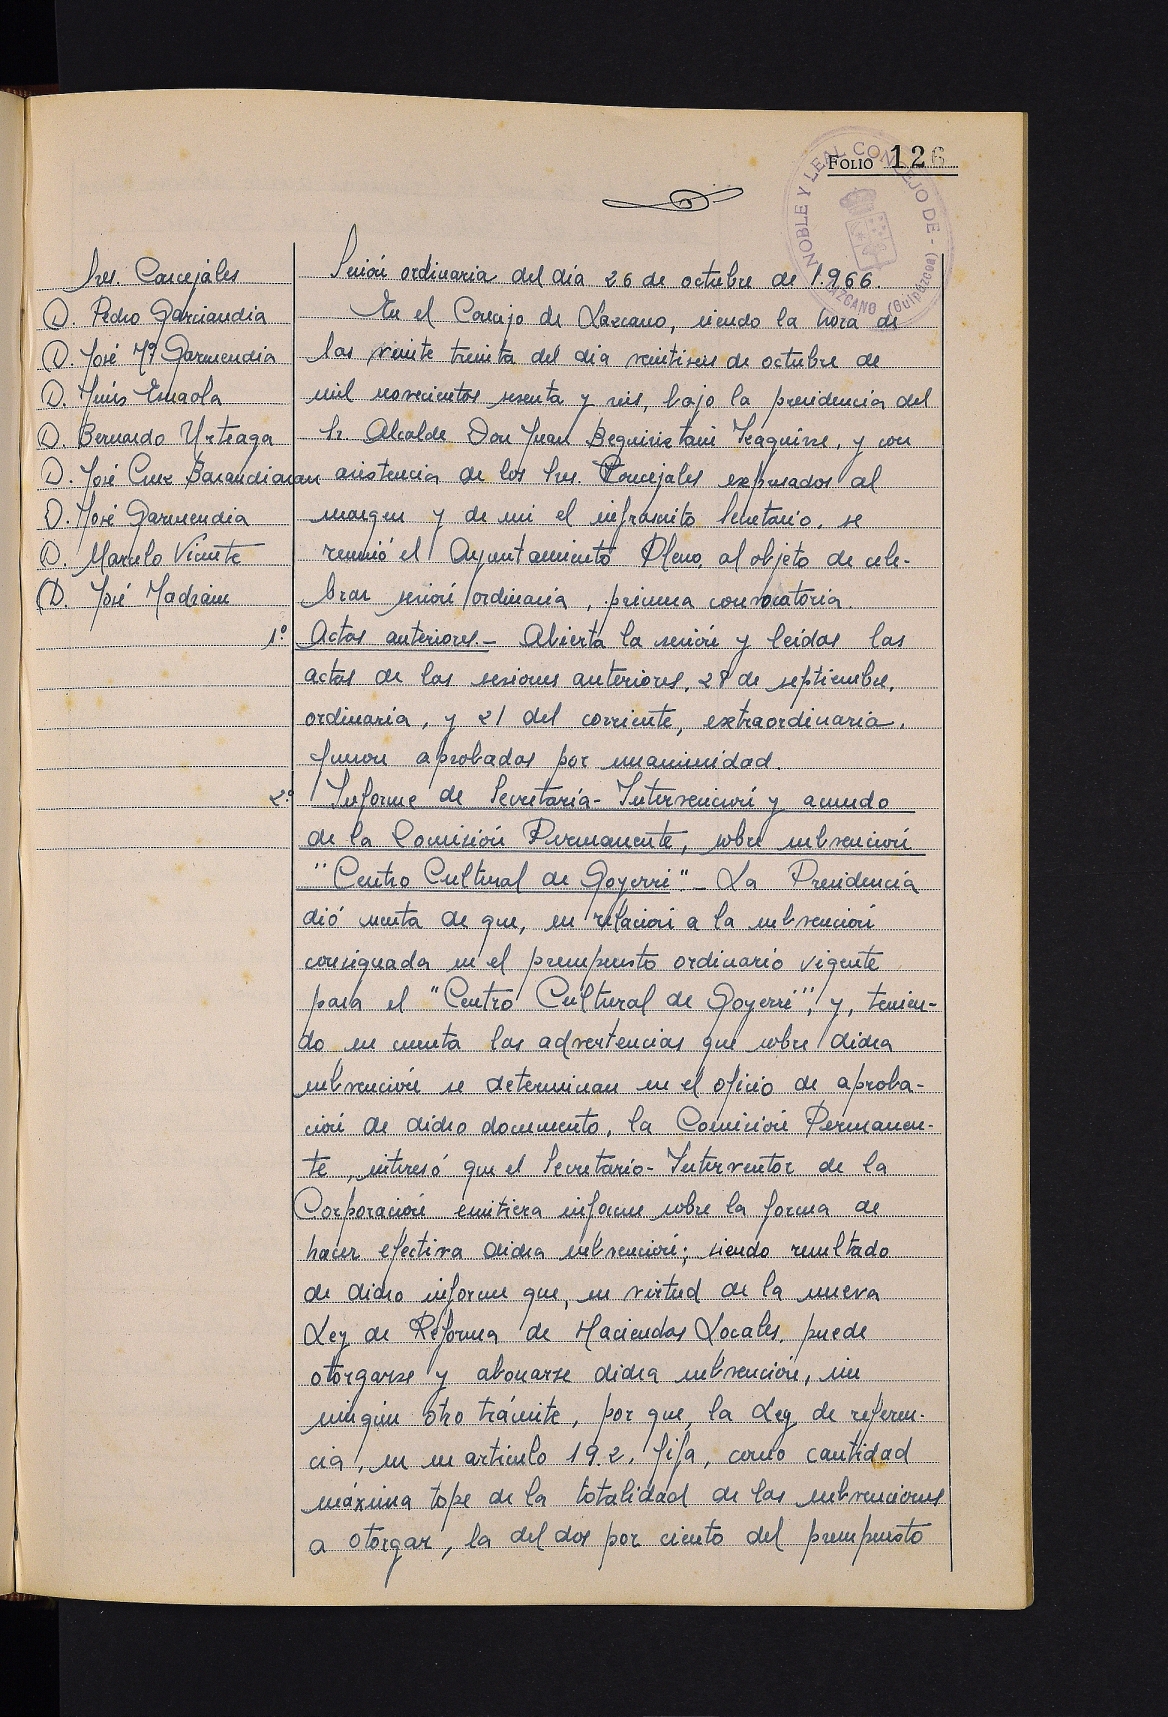 FOLIO 126
NOBLE Y LEAL CONCEJO DE - LAZCANO (Guipúzcoa)
Sres. Concejales
D. Pedro Garciandia
D. José Mª Garmendia
D. Jesús
D. Bernardo Urteaga
D. José Cruz Barandiaran
D. José Garmendia
D. Marcelo Vicente
D. José
Sesión ordinaria del dia 26 de octubre de 1.966.
En el Concejo de Lazcano, siendo la hora de
las veinte treinta del dia veintiseis de octubre de
mil novecientos sesenta y seis, bajo la presidencia del
Sr. Alcalde Don Juan Beguiristain Izaguirre, y con
asistencia de los Sres. Concejales expresados al
margen y de mi el infrascrito Secretario, se
reunió el Ayuntamiento Pleno, al objeto de cele-
brar sesión ordinaria, primera convocatoria.
1º Actas anteriores.- Abierta la sesión y leídas las
actas de las sesiones anteriores, 28 de septiembre,
ordinaria, y 21 del corriente, extraordinaria,
fueron aprobadas por unanimidad.
2º Informe de Secretaría-Intervención y acuerdo
de la Comisión Permanente, sobre subvención
"Centro Cultural de Goyerri".- La Presidencia
dió cuenta de que, en relación a la subvención
consignada en el presupuesto ordinario vigente
para el "Centro Cultural de Goyerri", y, tenien-
do en cuenta las advertencias que sobre dicha
subvención se determinan en el oficio de aproba-
ción de dicho documento, la Comisión Permanen-
te, interesó que el Secretario-Interventor de la
Corporación emitiera informe sobre la forma de
hacer efectiva dicha subvención; siendo resultado
de dicho informe que, en virtud de la nueva
Ley de Reforma de Haciendas Locales, puede
otorgarse y abonarse dicha subvención, sin
ningún otro trámite, por que, la Ley de referen-
cia, en su articulo 19.2. fija, como cantidad
máxima tope de la totalidad de las subvenciones
a otorgar, la del dos por ciento del presupuesto